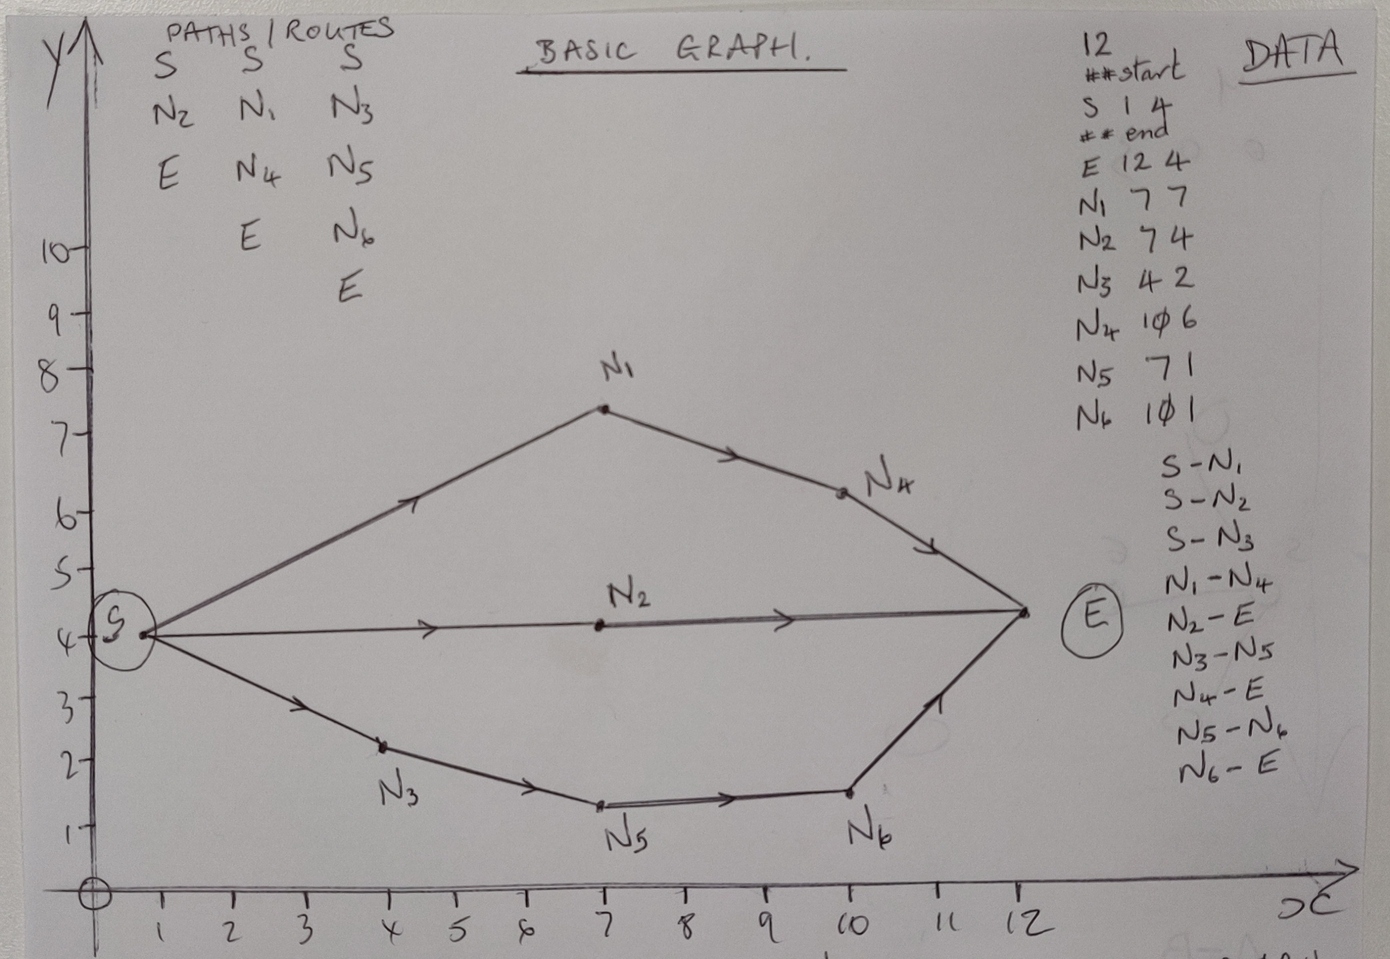 PATHS / ROUTES
S S S
N2 N1 N3
E N4 N5
E N6
E
BASIC GRAPH.
DATA
12
##start
S 1 4
## end
E 12 4
N1 7 7
N2 7 4
N3 4 2
N4 10 6
N5 7 1
N6 10 1
S-N1
S-N2
S-N3
N1-N4
N2-E
N3-N5
N4-E
N5-N6
N6-E
y
10
9
8
7
6
5
4
3
2
1
N1
N4
N2
S
E
N3
N5
N6
1 2 3 4 5 6 7 8 9 10 11 12
x